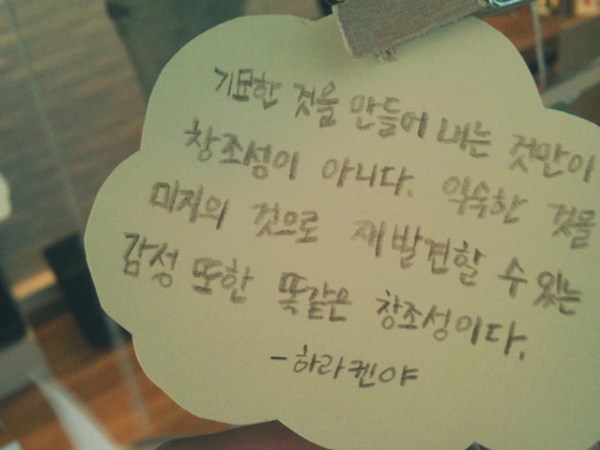 기묘한 것을 만들어 내는 것만이
창조성이 아니다. 익숙한 것을
미지의 것으로 재발견할 수 있는
감성 또한 똑같은 창조성이다.
-하라켄야